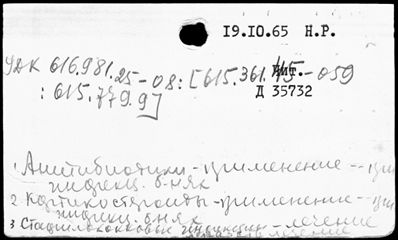 19.10.65 Н.Р.
УДК 616.981.25-08:[615.361.45-059
Д 35732
:615.779.9]
1 Антибиотики - применение - при
инфекц. б-нях
2 Кортикостероиды - применение - при
инфекц. б-нях
3 Стафилококковые инфекции - лечение